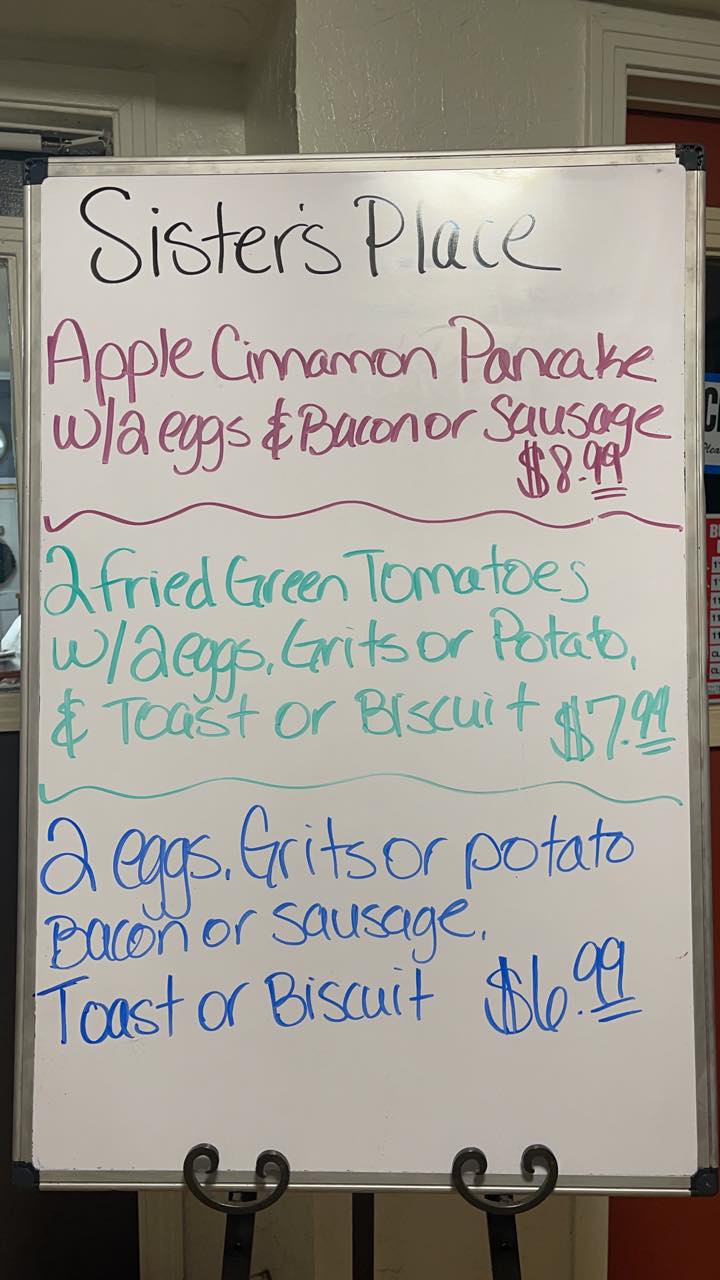 Sister's Place
Apple Cinnamon Pancake
w/2 eggs & Bacon or Sausage
$8.99
2 fried Green Tomatoes
w/2 eggs, Grits or Potato,
& Toast or Biscuit $7.99
2 eggs, Grits or potato
Bacon or sausage,
Toast or Biscuit $6.99